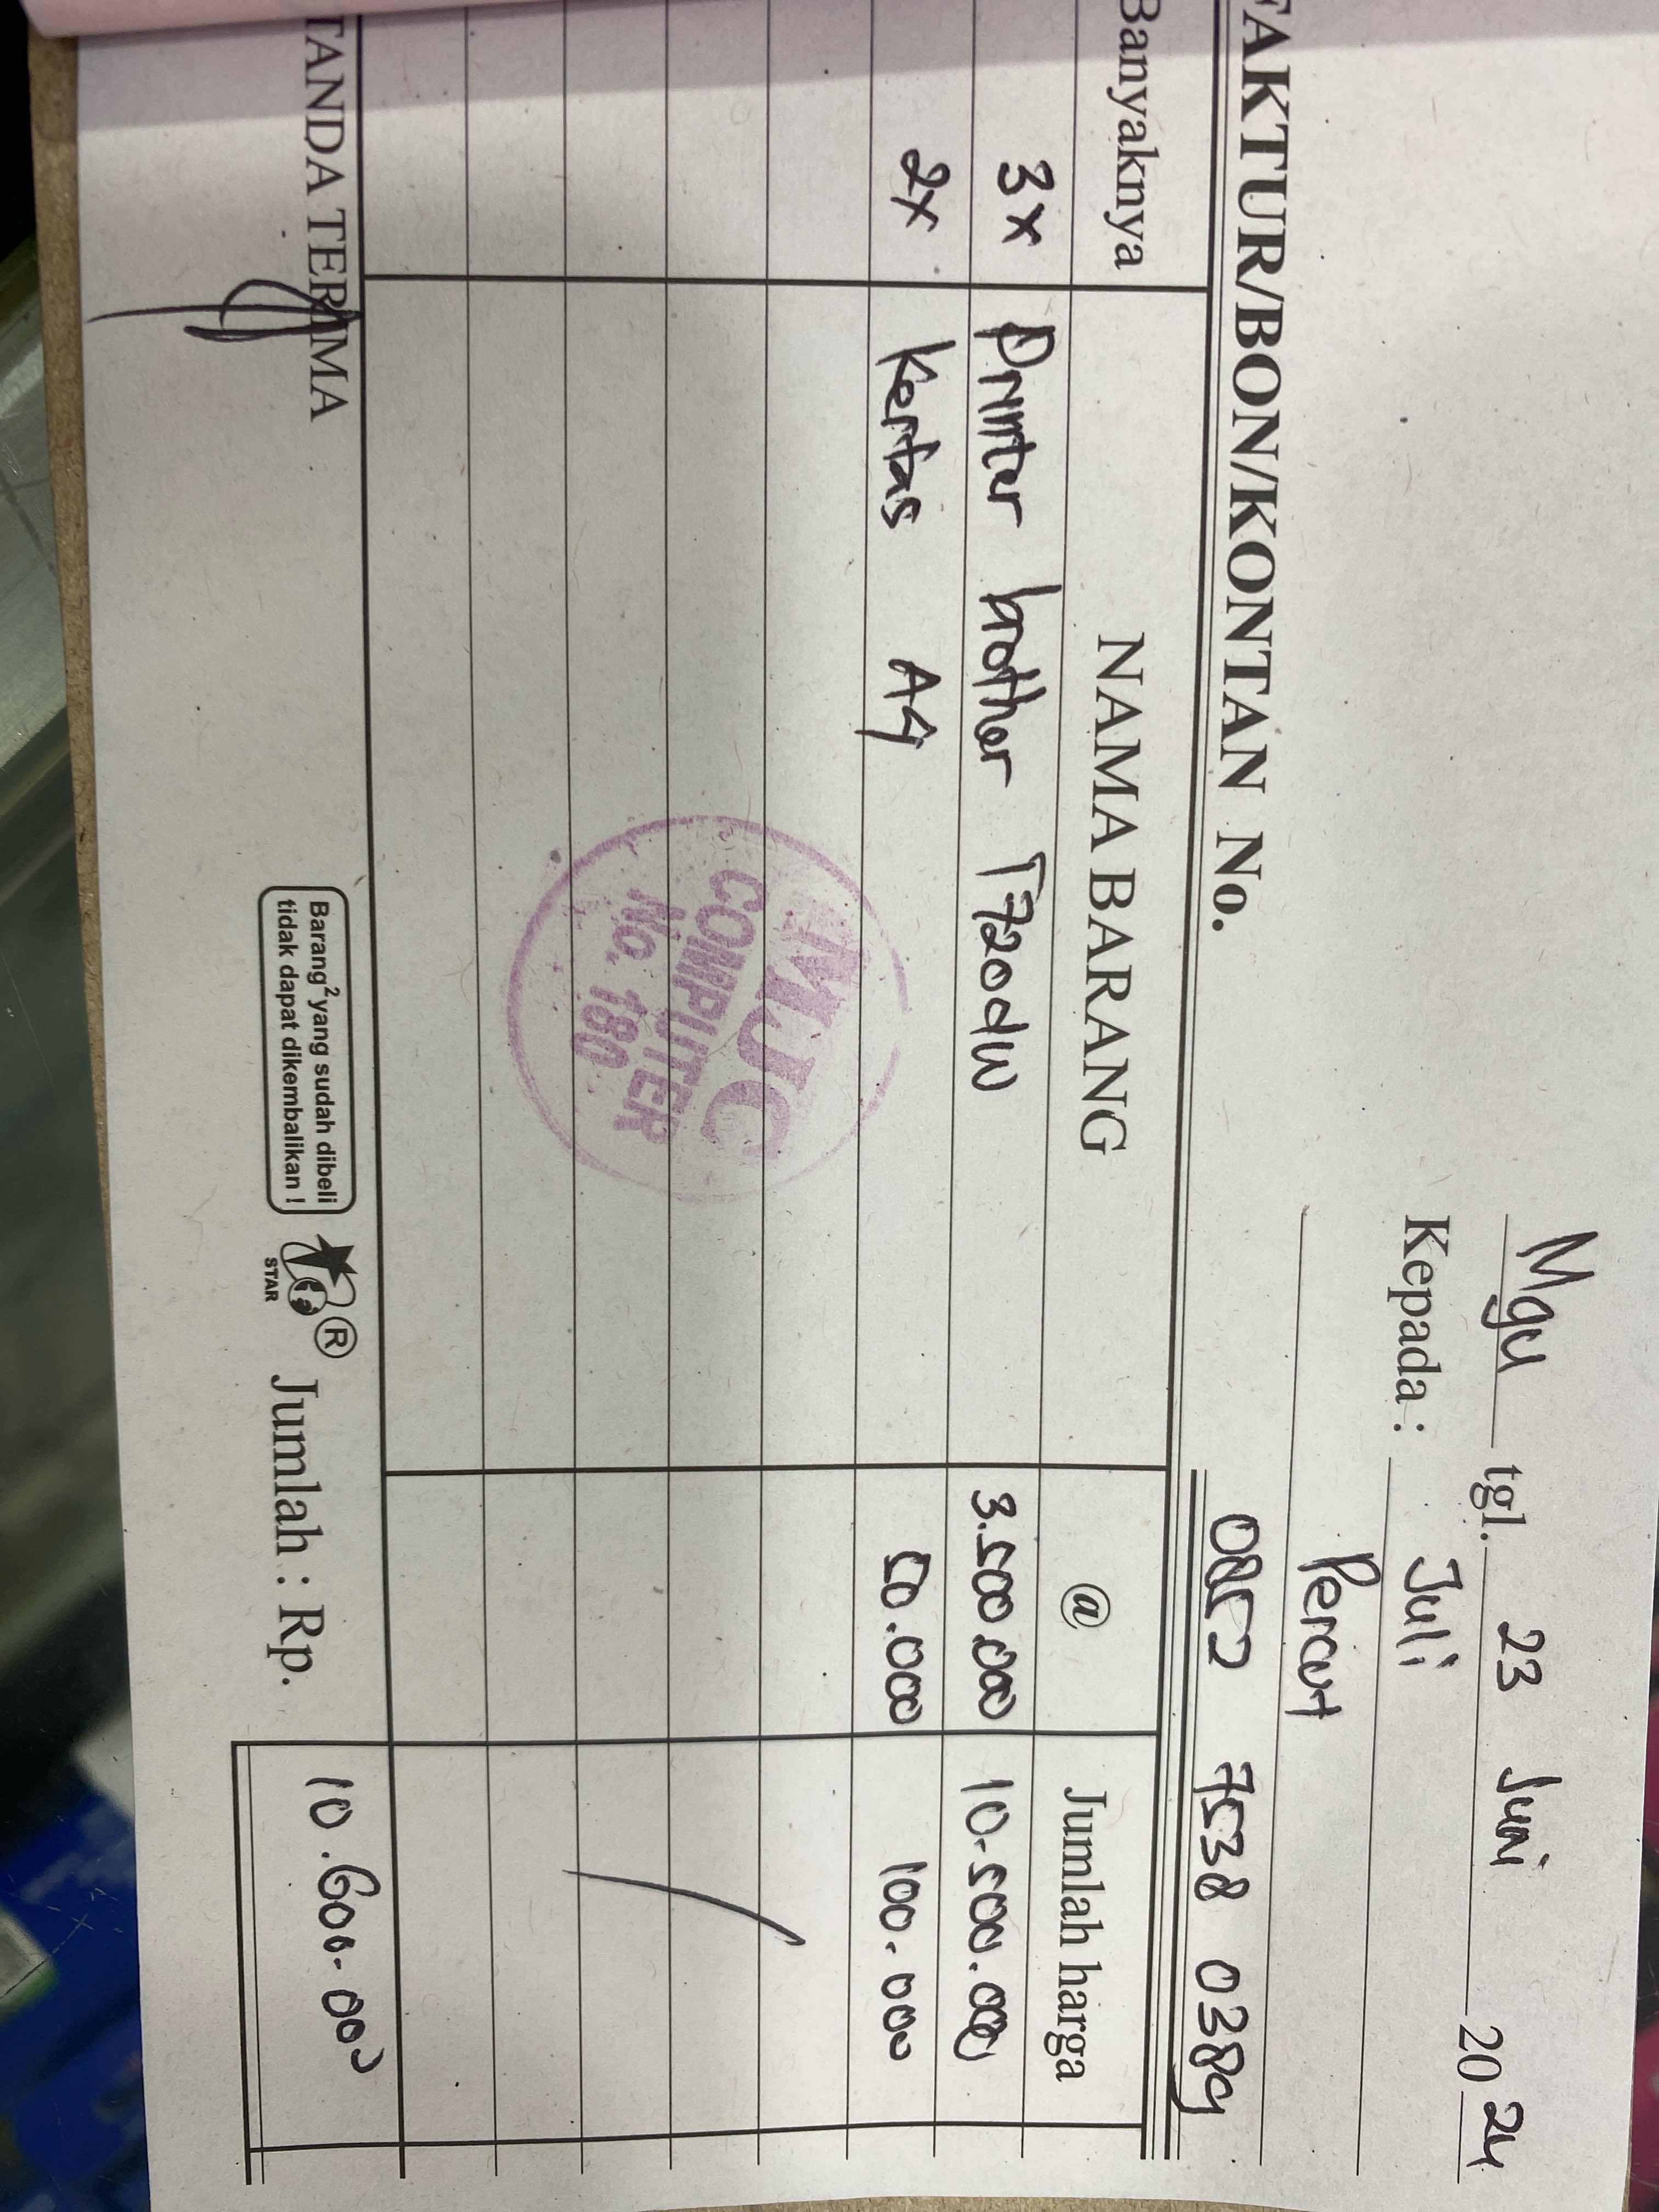 Mgu tgl. 23 Juni 2024
Kepada : Juli
Percut
0852 7538 0389
FAKTUR/BON/KONTAN No.
Banyaknya NAMA BARANG @ Jumlah harga
3x Printer brother T720dw 3.500.000 10.500.000
2x Kertas A4 50.000 100.000
MJC
COMPUTER
No. 180
TANDA TERIMA
Barang² yang sudah dibeli
tidak dapat dikembalikan !
STAR
®
Jumlah : Rp. 10.600.000